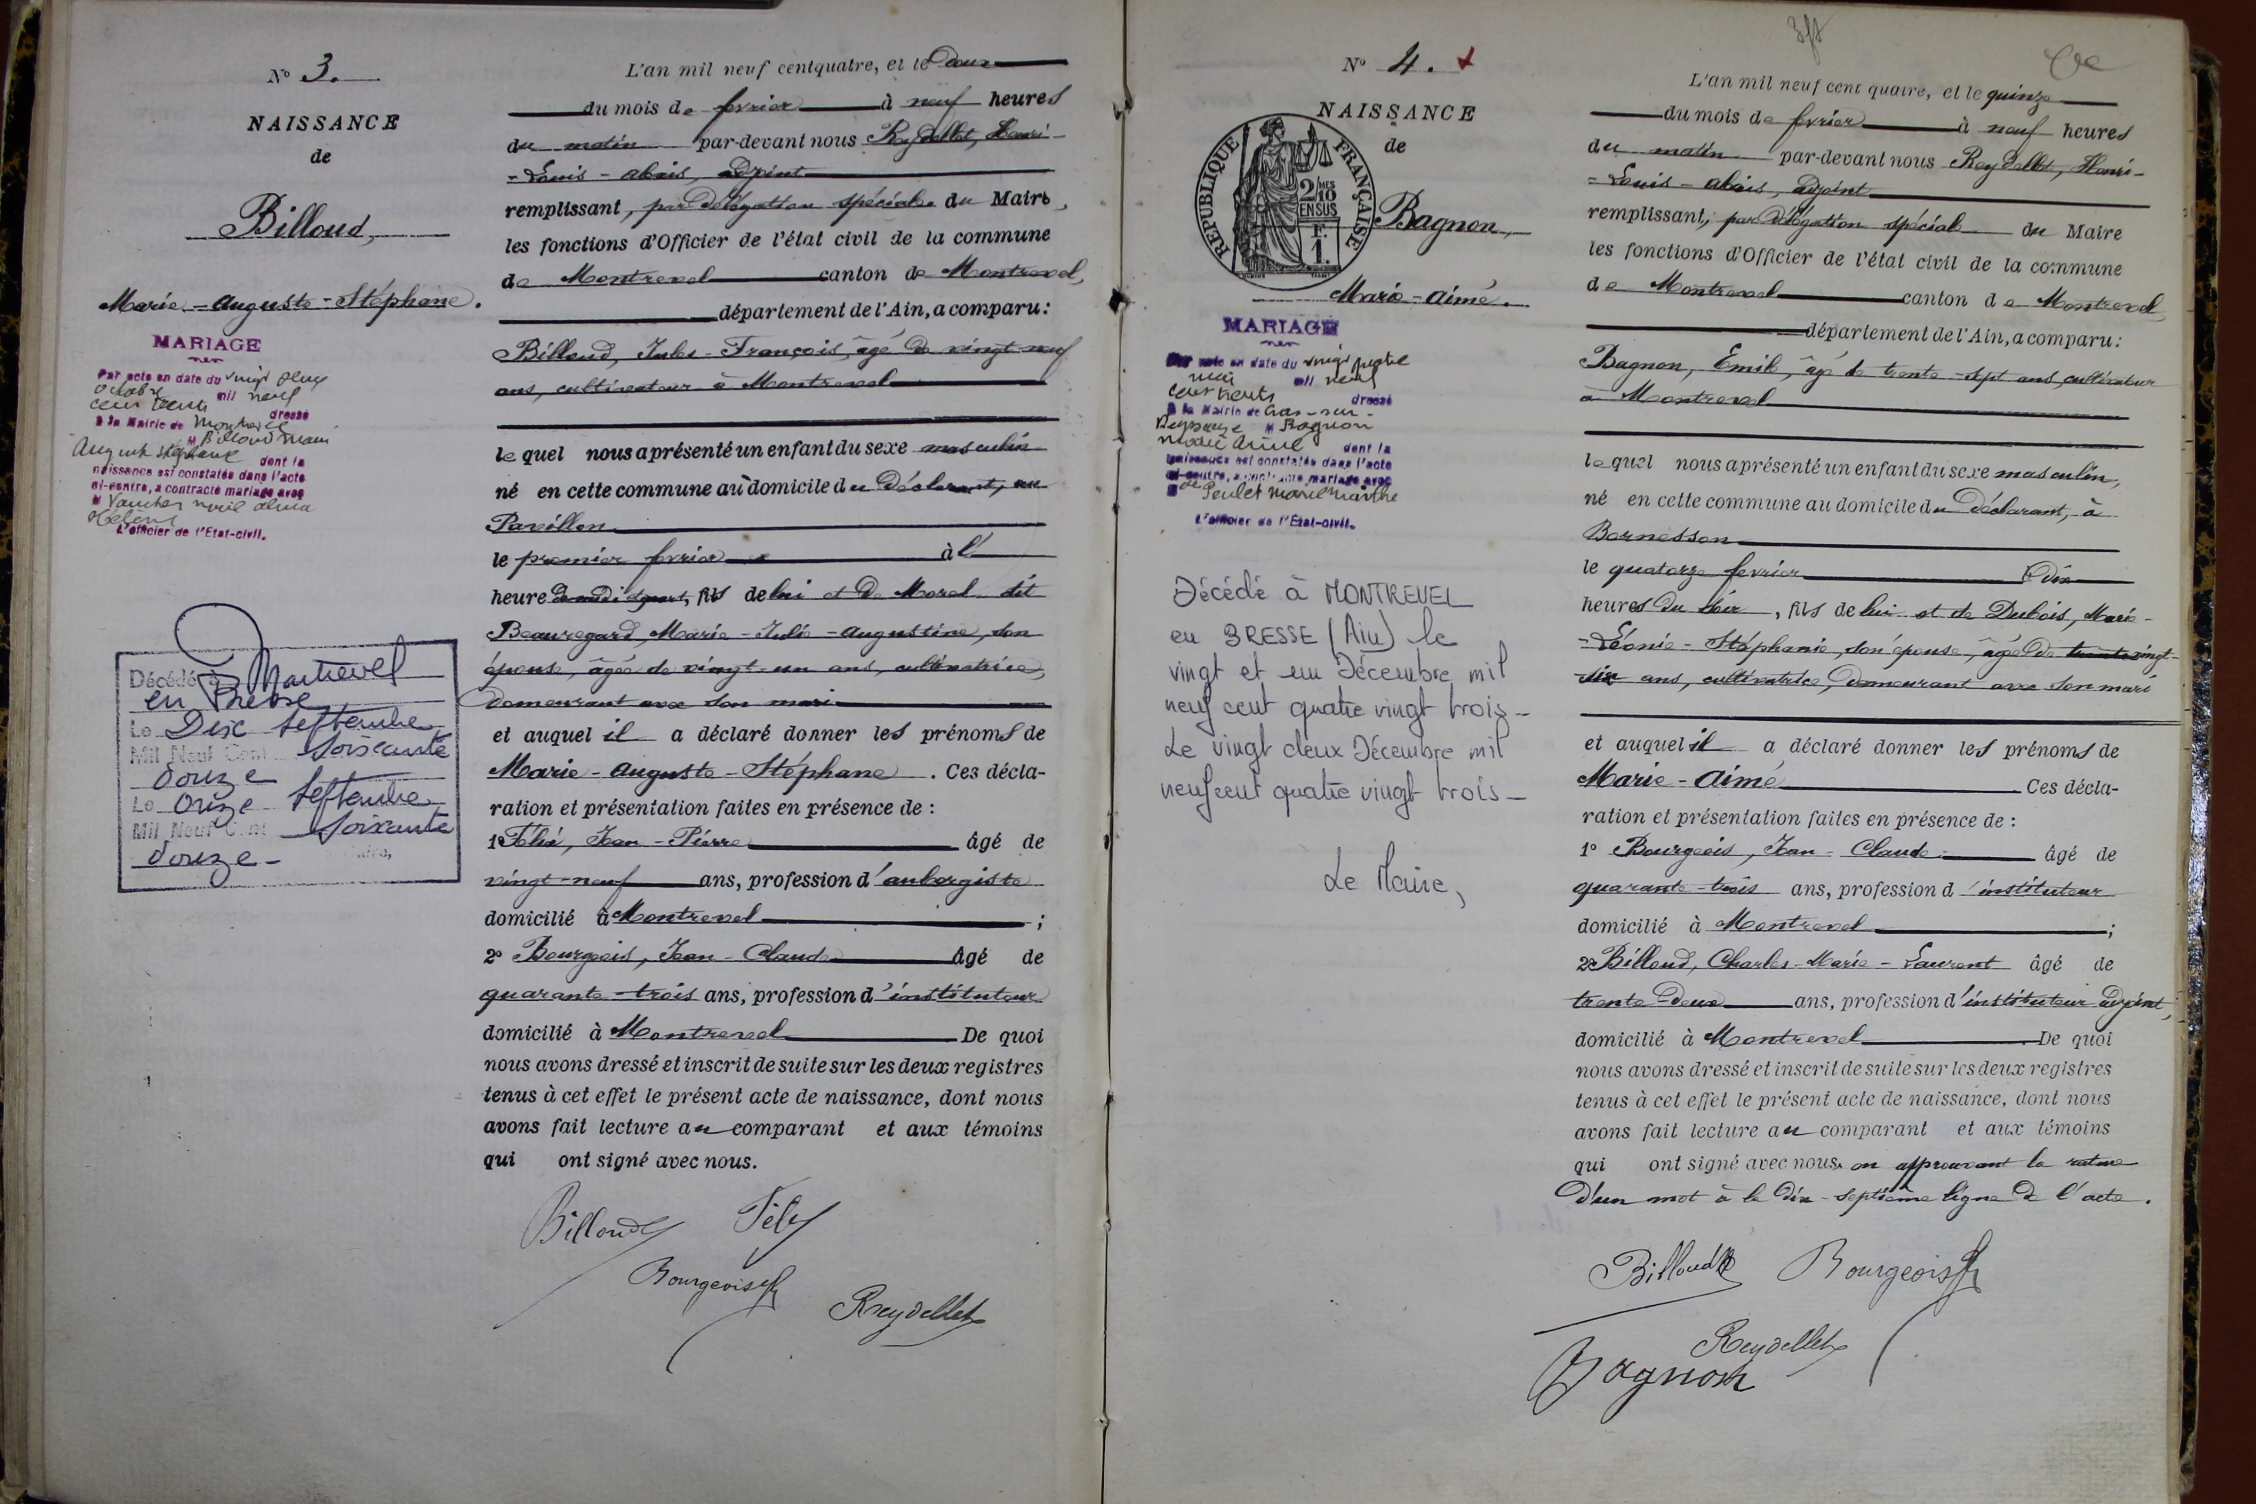 N° 3.
NAISSANCE
de
Billoud,
Marie-Auguste-Stéphane.
MARIAGE
Par acte en date du vingt deux
octobre mil neuf
cent trente dressé
à la Mairie de Montrevel
M Billoud Marie
Auguste Stéphane dont la
naissance est constatée dans l'acte
ci-contre, a contracté mariage avec
M Vaucher Marie
Hélène
L'officier de l'Etat-civil.
Décédé à Montrevel
en Bresse
Le Dix Septembre
Mil Neuf Cent Soixante
douze
Le onze Septembre
Mil Neuf Cent Soixante
douze-
L'an mil neuf cent quatre, et le deux
du mois de février à neuf heures
du matin par-devant nous Reydellet, Henri-
=Louis-Alexis, adjoint
remplissant, par délégation spéciale du Maire,
les fonctions d'Officier de l'état civil de la commune
de Montrevel canton de Montrevel,
département de l'Ain, a comparu:
Billoud, Jules-François, âgé de vingt-neuf
ans, cultivateur à Montrevel
lequel nous a présenté un enfant du sexe masculin
né en cette commune au domicile du Déclarant, au
Pavillon
le premier février à l'
heure de midi et quart, fils de lui et de Morel dit
Beauregard, Marie-Julie-Augustine, son
épouse, âgée de vingt-un ans, cultivatrice,
demeurant avec son mari
et auquel il a déclaré donner les prénoms de
Marie-Auguste-Stéphane. Ces décla-
ration et présentation faites en présence de :
1° Félix, Jean-Pierre âgé de
vingt-neuf ans, profession d'aubergiste
domicilié à Montrevel ;
2° Bourgeois, Jean-Claude âgé de
quarante-trois ans, profession d'instituteur
domicilié à Montrevel De quoi
nous avons dressé et inscrit de suite sur les deux registres
tenus à cet effet le présent acte de naissance, dont nous
avons fait lecture au comparant et aux témoins
qui ont signé avec nous.
Billoud
Bourgeois
Reydellet
N° 4.
NAISSANCE
de
RÉPUBLIQUE FRANÇAISE
2/10 MES
EN SUS
F.
1.
Bagnon,
Marie-Aimé.
MARIAGE
Par acte en date du vingt quatre
mai mil neuf
cent trente dressé
à la Mairie de Cras-sur-
Reyssouze M Bagnon
Marie Aimé dont la
naissance est constatée dans l'acte
ci-contre, a contracté mariage avec
M Marie Marthe
L'officier de l'Etat-civil.
Décédé à MONTREVEL
en BRESSE (Ain) le
vingt et un Décembre mil
neuf cent quatre vingt trois-
Le vingt deux Décembre mil
neuf cent quatre vingt trois-
Le Maire,
L'an mil neuf cent quatre, et le quinze
du mois de février à neuf heures
du matin par-devant nous Reydellet, Henri-
=Louis-Alexis, adjoint
remplissant, par délégation spéciale du Maire
les fonctions d'Officier de l'état civil de la commune
de Montrevel canton de Montrevel,
département de l'Ain, a comparu:
Bagnon, Emile, âgé de trente-sept ans, cultivateur
à Montrevel
lequel nous a présenté un enfant du sexe masculin,
né en cette commune au domicile du Déclarant, à
Bornesson
le quatorze février à dix
heures du soir, fils de lui et de Dubois, Marie-
=Léonie-Stéphanie, son épouse, âgée de trente vingt-
six ans, cultivatrice, demeurant avec son mari
et auquel il a déclaré donner les prénoms de
Marie-Aimé Ces décla-
ration et présentation faites en présence de :
1° Bourgeois, Jean-Claude âgé de
quarante-trois ans, profession d'instituteur
domicilié à Montrevel ;
2° Billoud, Charles-Marie-Laurent âgé de
trente-deux ans, profession d'instituteur adjoint,
domicilié à Montrevel. De quoi
nous avons dressé et inscrit de suite sur les deux registres
tenus à cet effet le présent acte de naissance, dont nous
avons fait lecture au comparant et aux témoins
qui ont signé avec nous en approuvant la rature
d'un mot à la dix-septième ligne de l'acte.
Billoud Bourgeois
Reydellet
Bagnon